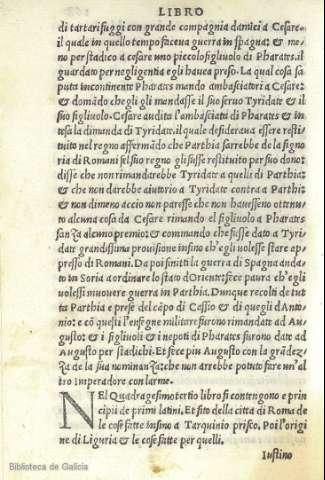 LIBRO
di tartari fuggi con grande compagnia damici a Cesare,
il quale in quello tempo faceua guerra in spagna: & me-
no per stadico a cesare uno piccolo figliuolo di Pharates, il
guardato per negligentia egli hauea preso. La qual cosa sa
puta incontinente Pharates mando ambasciatori a Cesare:
& domãdo che gli gli mandasse il suo seruo Tyridate & il
suo figliuolo. Cesare audita l'ambasciata di Pharates & in
tesa la dimanda di Tyridate, il quale desideraua essere resti
tuito nel regno affermãdo che Parthia sarrebbe de la signo
ria di Romani sel suo regno gli fusse restituito per suo dono:
disse che non rimandarebbe Tyridate a quelli di Parthia:
& che non darebbe aiutorio a Tyridate contra a Parthi:
& non dimeno accio non paresse che non hauesseno ottenu
to alcuna cosa da Cesare rimando el figliuolo a Pharates
sanza alcuno premio: & commando che fusse dato a Tyri
date grandissima prouisione insino ch'egli uolesse stare ap-
presso di Romani. Da poi finitta la guerra di Spagna anda
to in Soria a ordinare lo stato d'Oriente: fece paura ch'e gli
uolessi muouere guerra in Parthia. Dunque recolti de tut
ta Parthia e prese del cãpo di Cassio & di quegli d'Anto-
nio: e cõ questi l'ensegne militare furono rimandate ad Au-
gusto: & i figliuoli & i nepoti di Pharates furono date ad
Augusto per stadichi. Et fece piu Augusto con la grãdez-
za de la sua nominanza: che non arrebbe potuto fare un'al
tro Imperadore con larme.
NEl Quadragesimotertio libro si contengono e prin-
cipii de primi latini, Et sito della citta di Roma de
le cose fatte insino a Tarquinio prisco. Poi l'origi
ne di Liguria & le cose fatte per quelli.
Iustino
Biblioteca de Galicia